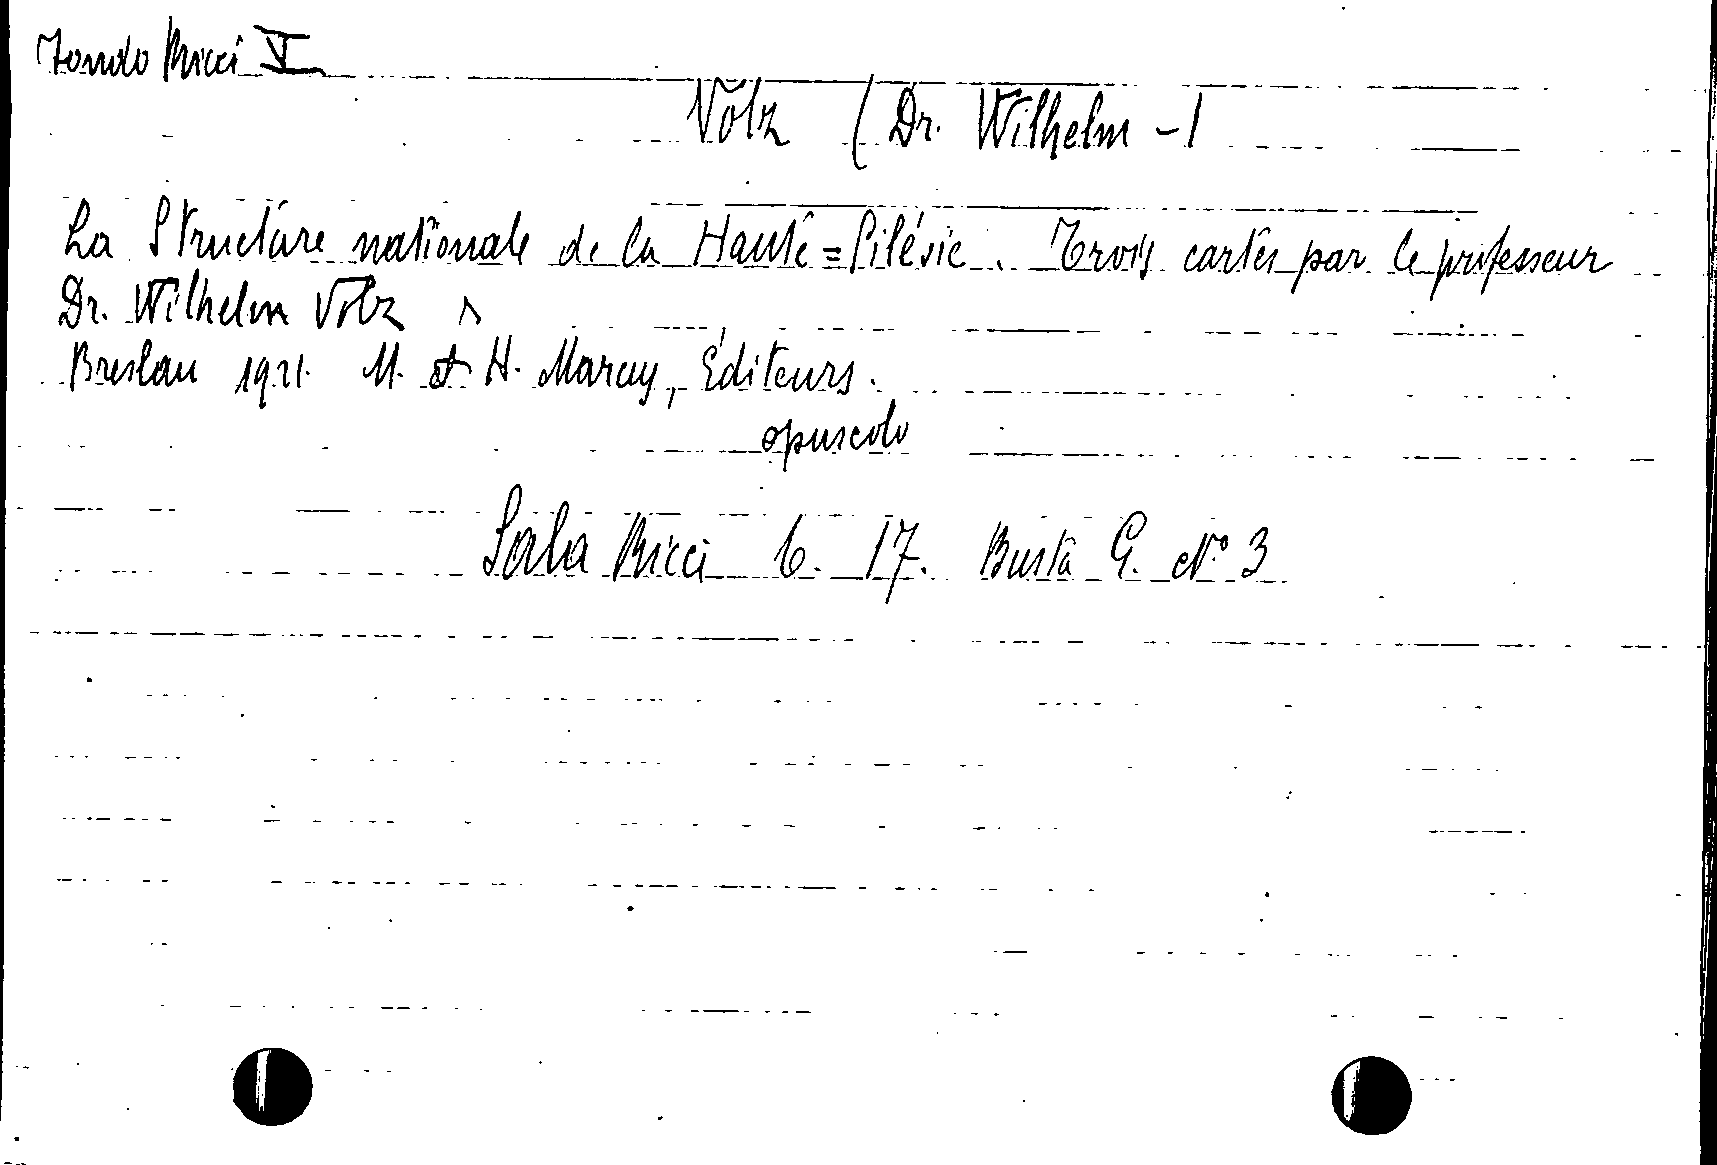 Fondo Ricci V
Volz (Dr. Wilhelm -)
La Structure nationale de la Haute=Silésie. Trois cartes par le professeur
Dr. Wilhelm Volz
Breslau 1921. M. et H. Marcus, Éditeurs.
opuscolo
Sala Ricci 6. 17. Busta G. N° 3